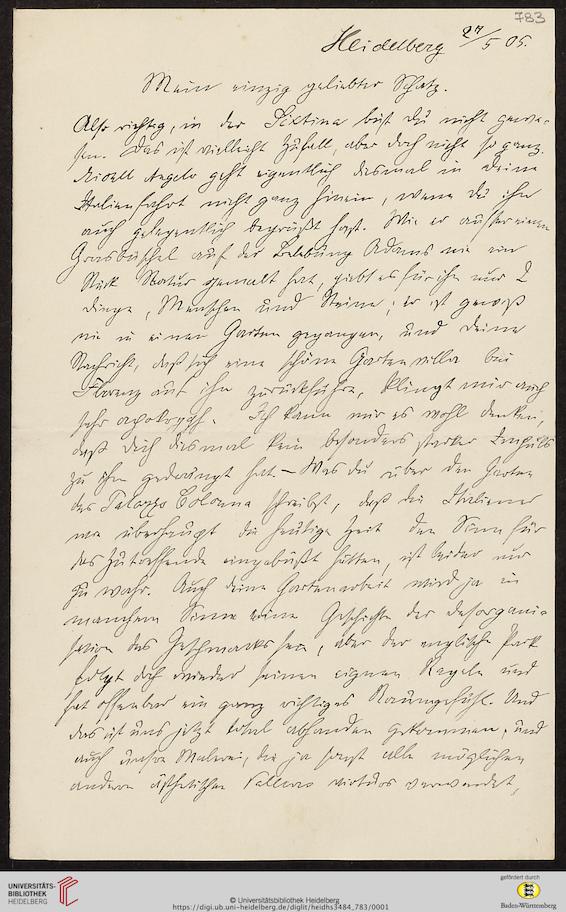 783
Heidelberg 27/5 05.
Mein einzig geliebter Schatz.
Also richtig, in der Sixtina bist Du nicht gewe-
sen. Das ist vielleicht Zufall, aber doch nicht so ganz.
Michell Angelo geht eigentlich diesmal in Deine
Italienfahrt nicht ganz hinein, wenn Du ihn
auch gelegentlich begrüßt hast. Wie er außer einem
Grasbüschel auf der Belebung Adams nie ein
Stück Natur gemalt hat, giebt es für ihn nur 2
Dinge, Menschen und Steine; er ist gewiß
nie in einen Garten gegangen, und Deine
Nachricht, daß sich eine schöne Gartenvilla bei
Florenz auf ihn zurückführe, klingt mir auch
sehr apokryph. Ich kann mir es wohl denken,
daß Dich diesmal kein besonders starker Impuls
zu ihm gedrängt hat. – Was Du über den Garten
des Palazzo Colonna schreibst, daß die Italiener
wie überhaupt die heutige Zeit den Sinn für
das Zutreffende eingebüßt hätten, ist leider nur
zu wahr. Auch Deine Gartenarbeit wird ja in
manchem Sinne eine Geschichte der Desorgani-
sation des Geschmacks sein, aber der englische Park
folgt doch wieder seinen eignen Regeln und
hat offenbar ein ganz richtiges Raumgefühl. Und
das ist uns jetzt total abhanden gekommen; und
auch unsre Malerei, die ja sonst alle möglichen
andern ästhetischen Valeurs virtuos verwendet,
UNIVERSITÄTS-
BIBLIOTHEK
HEIDELBERG
© Universitätsbibliothek Heidelberg
https://digi.ub.uni-heidelberg.de/diglit/heidhs3484_783/0001
gefördert durch
Baden-Württemberg